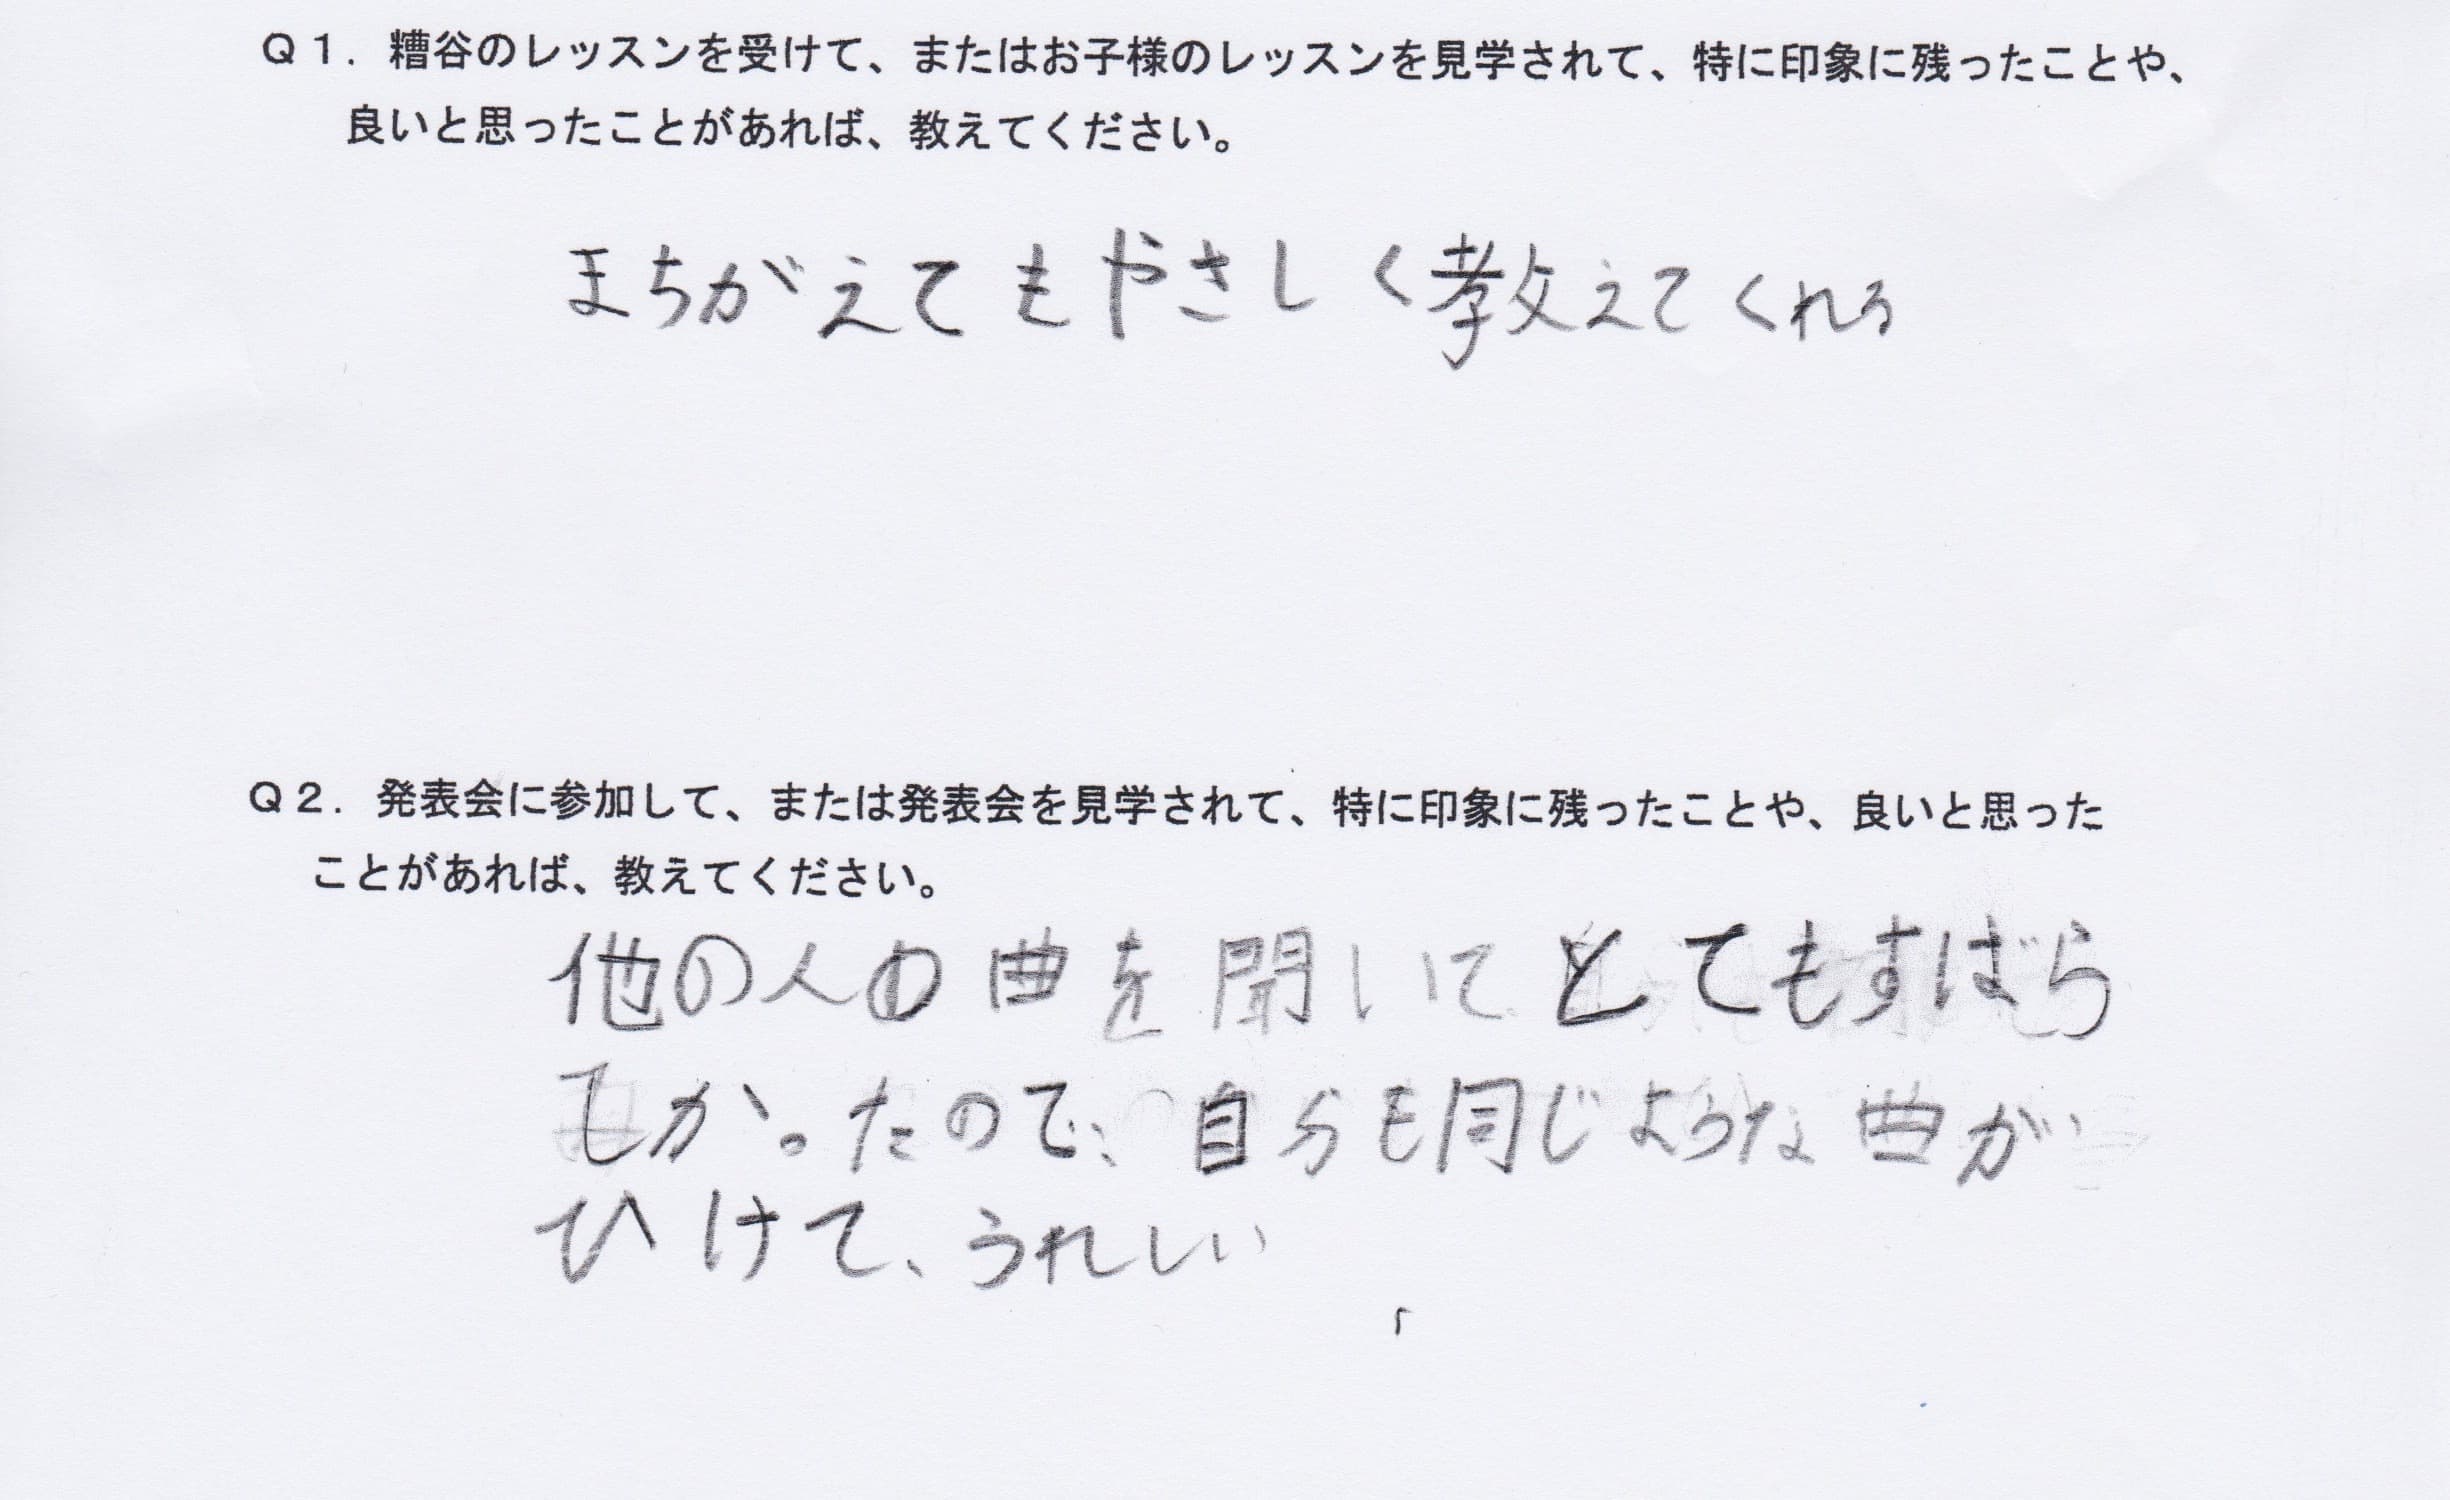 Q1．糟谷のレッスンを受けて、またはお子様のレッスンを見学されて、特に印象に残ったことや、
良いと思ったことがあれば、教えてください。
まちがえてもやさしく教えてくれる
Q2．発表会に参加して、または発表会を見学されて、特に印象に残ったことや、良いと思った
ことがあれば、教えてください。
他の人の曲を聞いてとてもすばら
しかったので、自分も同じような曲が
ひけて、うれしい